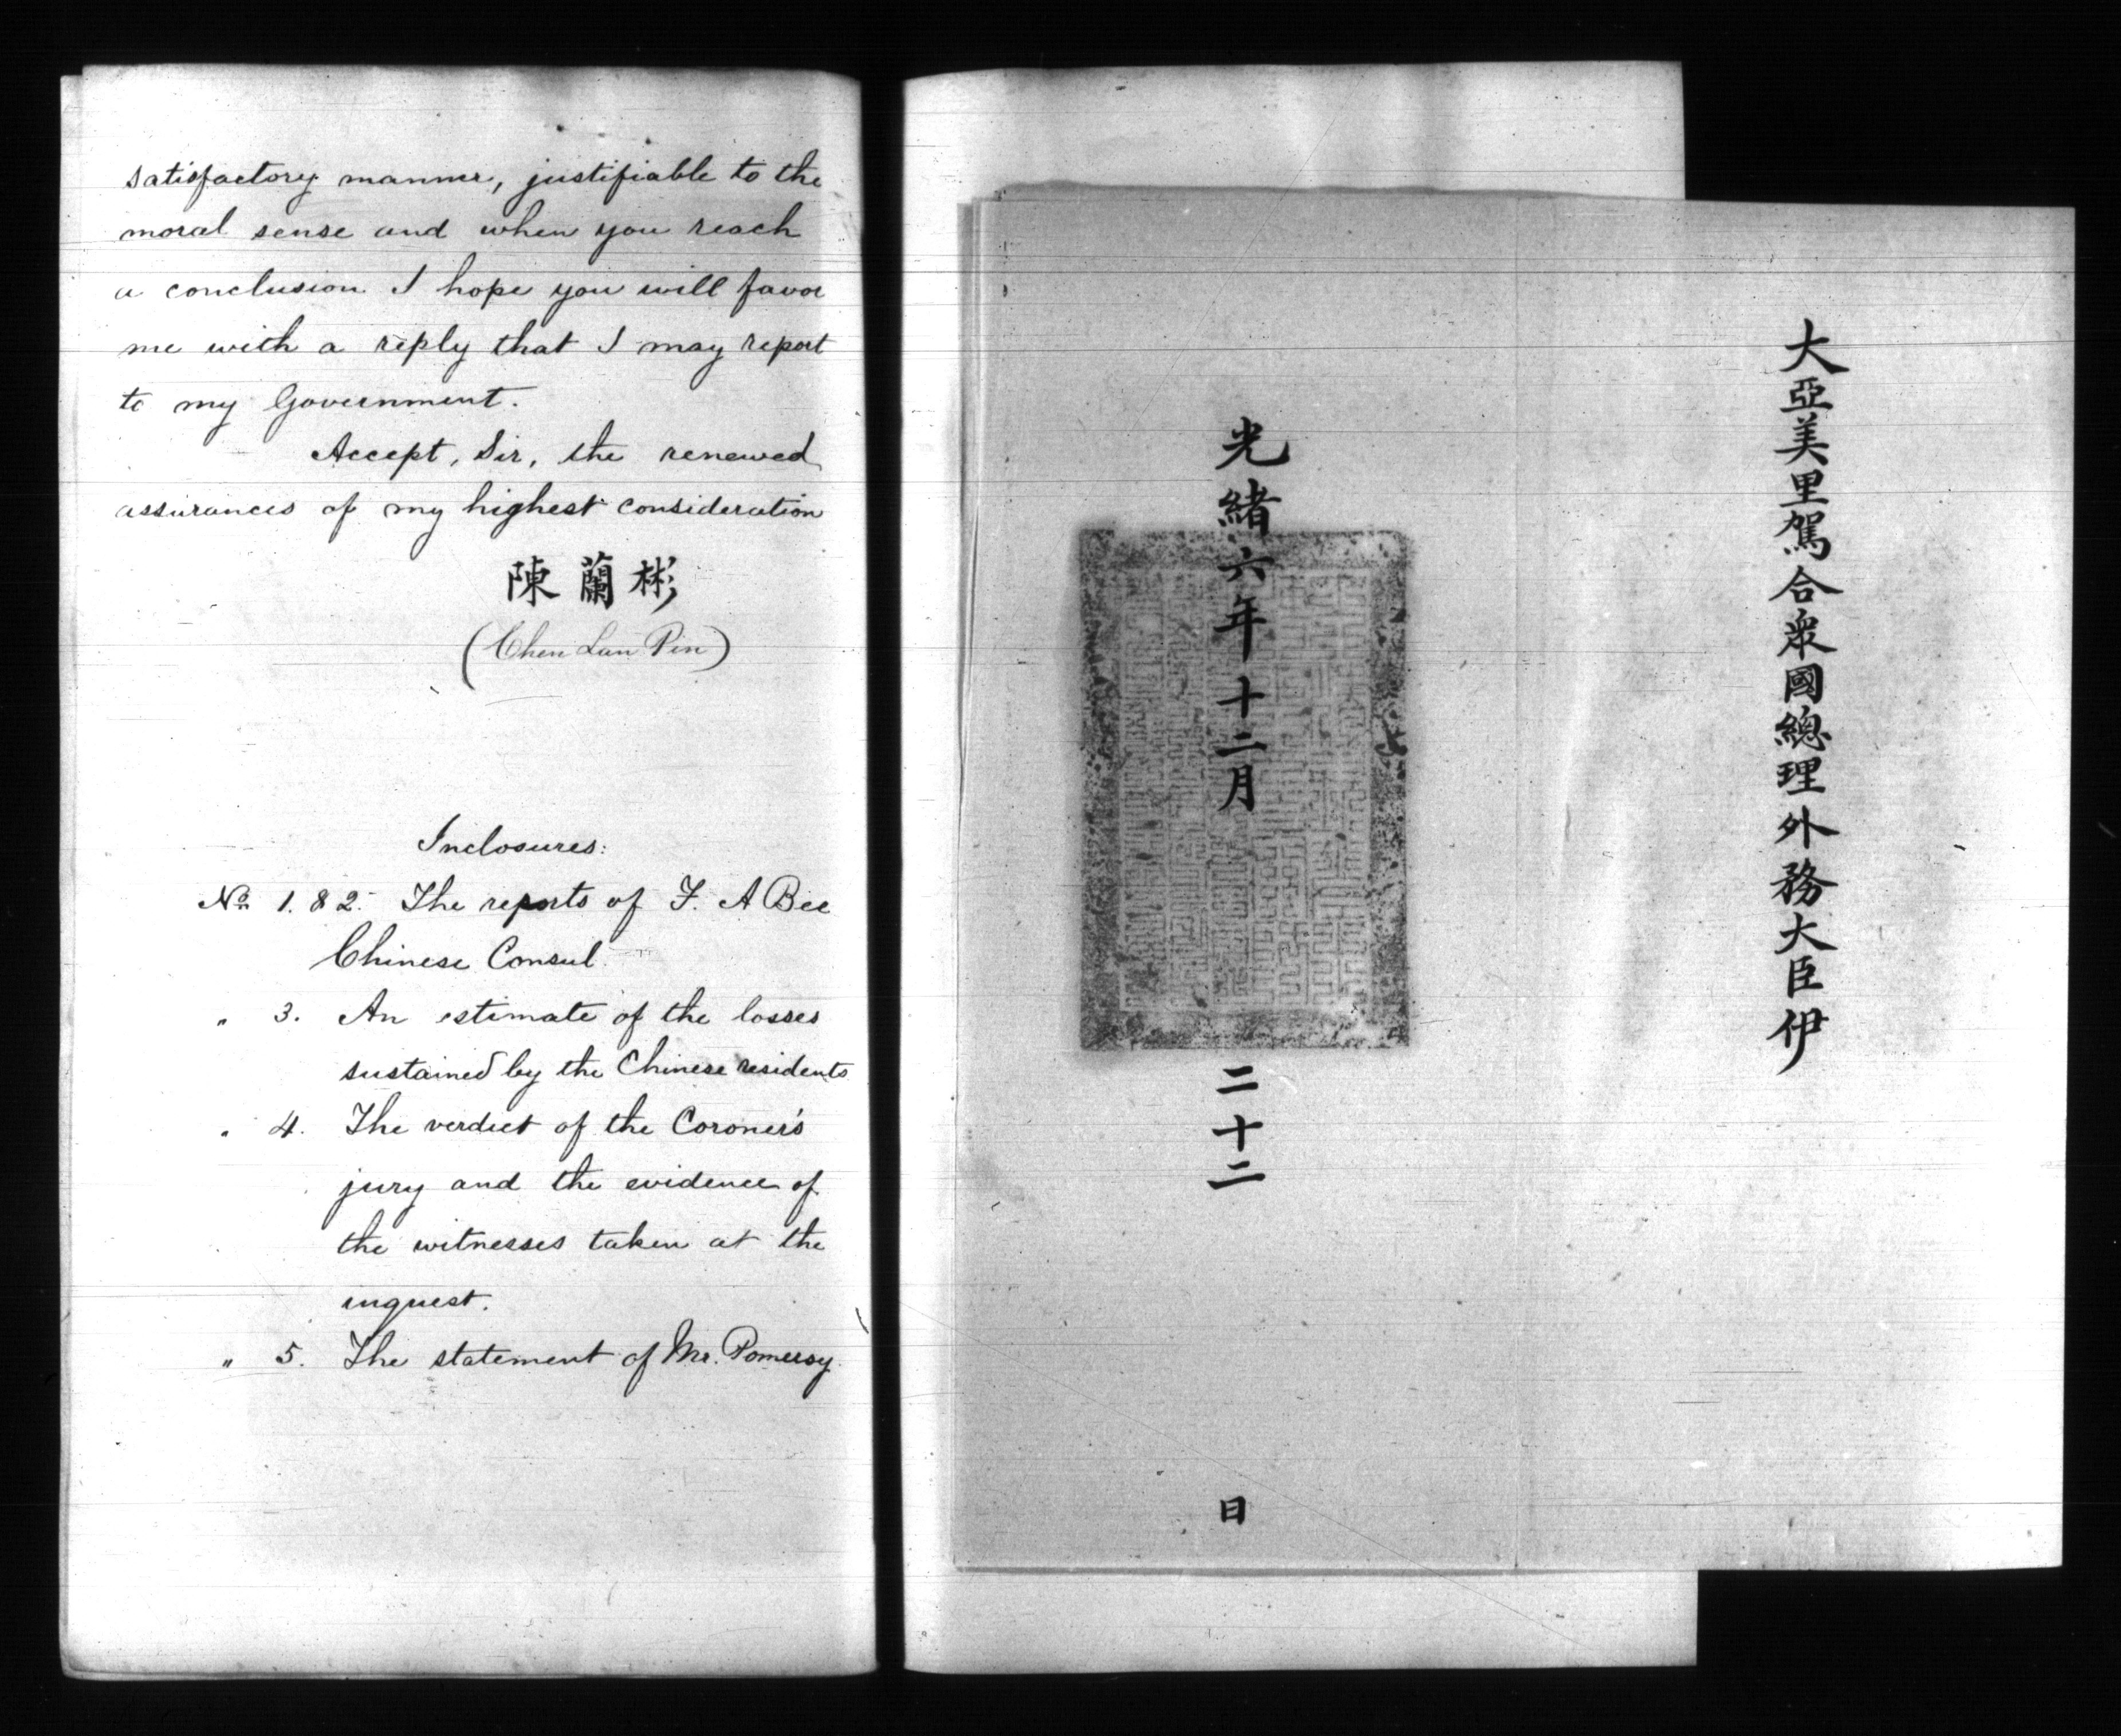 satisfactory manner, justifiable to the
moral sense and when you reach
a conclusion I hope you will favor
me with a reply that I may report
to my Government.
Accept, Sir, the renewed
assurances of my highest consideration
陳蘭彬
(Chen Lan Pin)
Inclosures:
No 1. & 2. The reports of F. A Bee
Chinese Consul.
" 3. An estimate of the losses
sustained by the Chinese residents
" 4. The verdict of the Coroner's
jury and the evidence of
the witnesses taken at the
inquest.
" 5. The statement of Mr. Pomeroy.
大亞美里駕合衆國總理外務大臣伊
光緒六年十二月二十二日